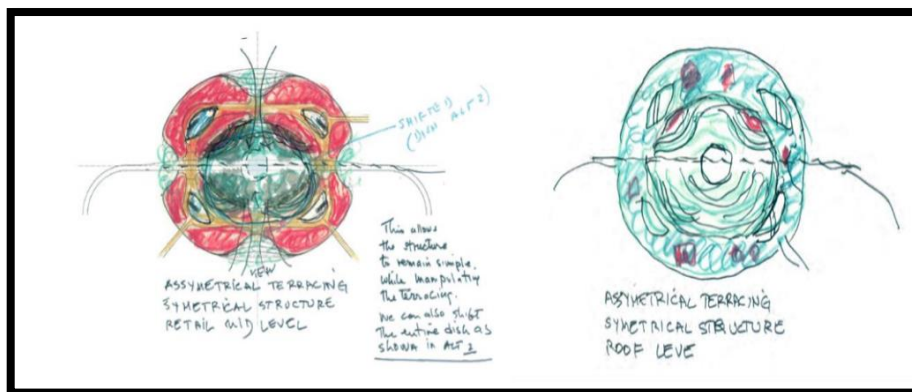 SHIFTED
(DISH ALT 2)
VIEW
ASSYMETRICAL TERRACING
SYMETRICAL STRUCTURE
RETAIL MID LEVEL
This allows
the structure
to remain simple,
while manipulating
the terracing.
We can also shift
the entire dish as
shown in ALT 2
ASSYMETRICAL TERRACING
SYMETRICAL STRUCTURE
ROOF LEVE